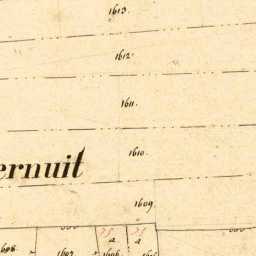 1613.
1612.
1611.
1610.
ernuit
1609.
1608. 1607. 1606.